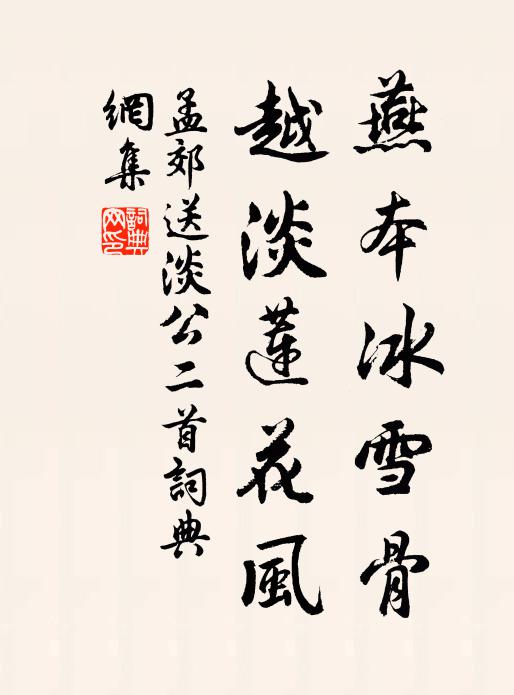 燕本冰雪骨
越淡蓮花風
孟郊送淡公二首詞典
網集
詞典網印